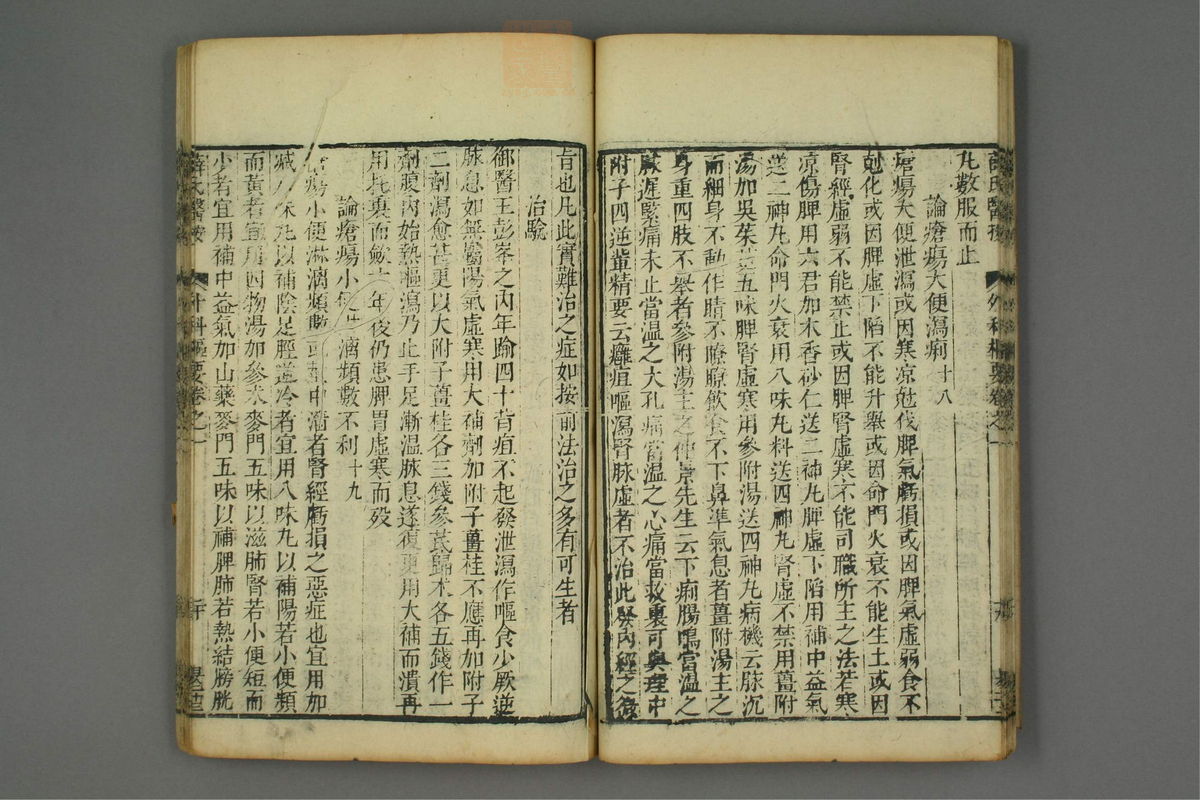 丸數服而止
論瘡瘍大便瀉痢十八
瘡瘍大便泄瀉或因寒凉尅伐脾氣虧損或因脾氣虛弱食不
尅化或因脾虛下陷不能升舉或因命門火衰不能生土或因
腎經虛弱不能禁止或因脾腎虛寒不能司職所主之法若寒
凉傷脾用六君加木香砂仁送二神丸脾虛下陷用補中益氣
送二神丸命門火衰用八味丸料送四神丸腎虛不禁用薑附
湯加吳茱萸五味脾腎虛寒用參附湯送四神丸病機云脉沉
而細身不動作睛不瞭飲食不下鼻準氣息者薑附湯主之
身重四肢不舉者參附湯主之仲景先生云下痢腸鳴當溫之
脉遲緊痛未止當溫之大孔痛當溫之心痛當救裏可與理中
附子四逆軰精要云癰疽嘔瀉腎脉虛者不治此發內經之微
旨也凡此實難治之症如按前法治之多有可生者
治驗
御醫王彭峯之丙年踰四十背疽不起發泄瀉作嘔食少厥逆
脉息如無屬陽氣虛寒用大補劑加附子薑桂不應再加附子
二劑瀉愈甚更以大附子薑桂各三錢參芪歸朮各五錢作一
劑腹內始熱嘔瀉乃止手足漸溫脉息遂復更用大補而潰再
用托裏而歛十年後仍患脾胃虛寒而歿
論瘡瘍小便淋漓頻數不利十九
瘡瘍小便淋漓頻數或莖中濇者腎經虧損之惡症也宜用加
減八味丸以補陰足脛逆冷者宜用八味丸以補陽若小便頻
而黃者宜用四物湯加參朮麥門五味以滋肺腎若小便短而
少者宜用補中益氣加山藥麥門五味以補脾肺若熱結膀胱
薛氏醫按
外科樞要卷之一
二十